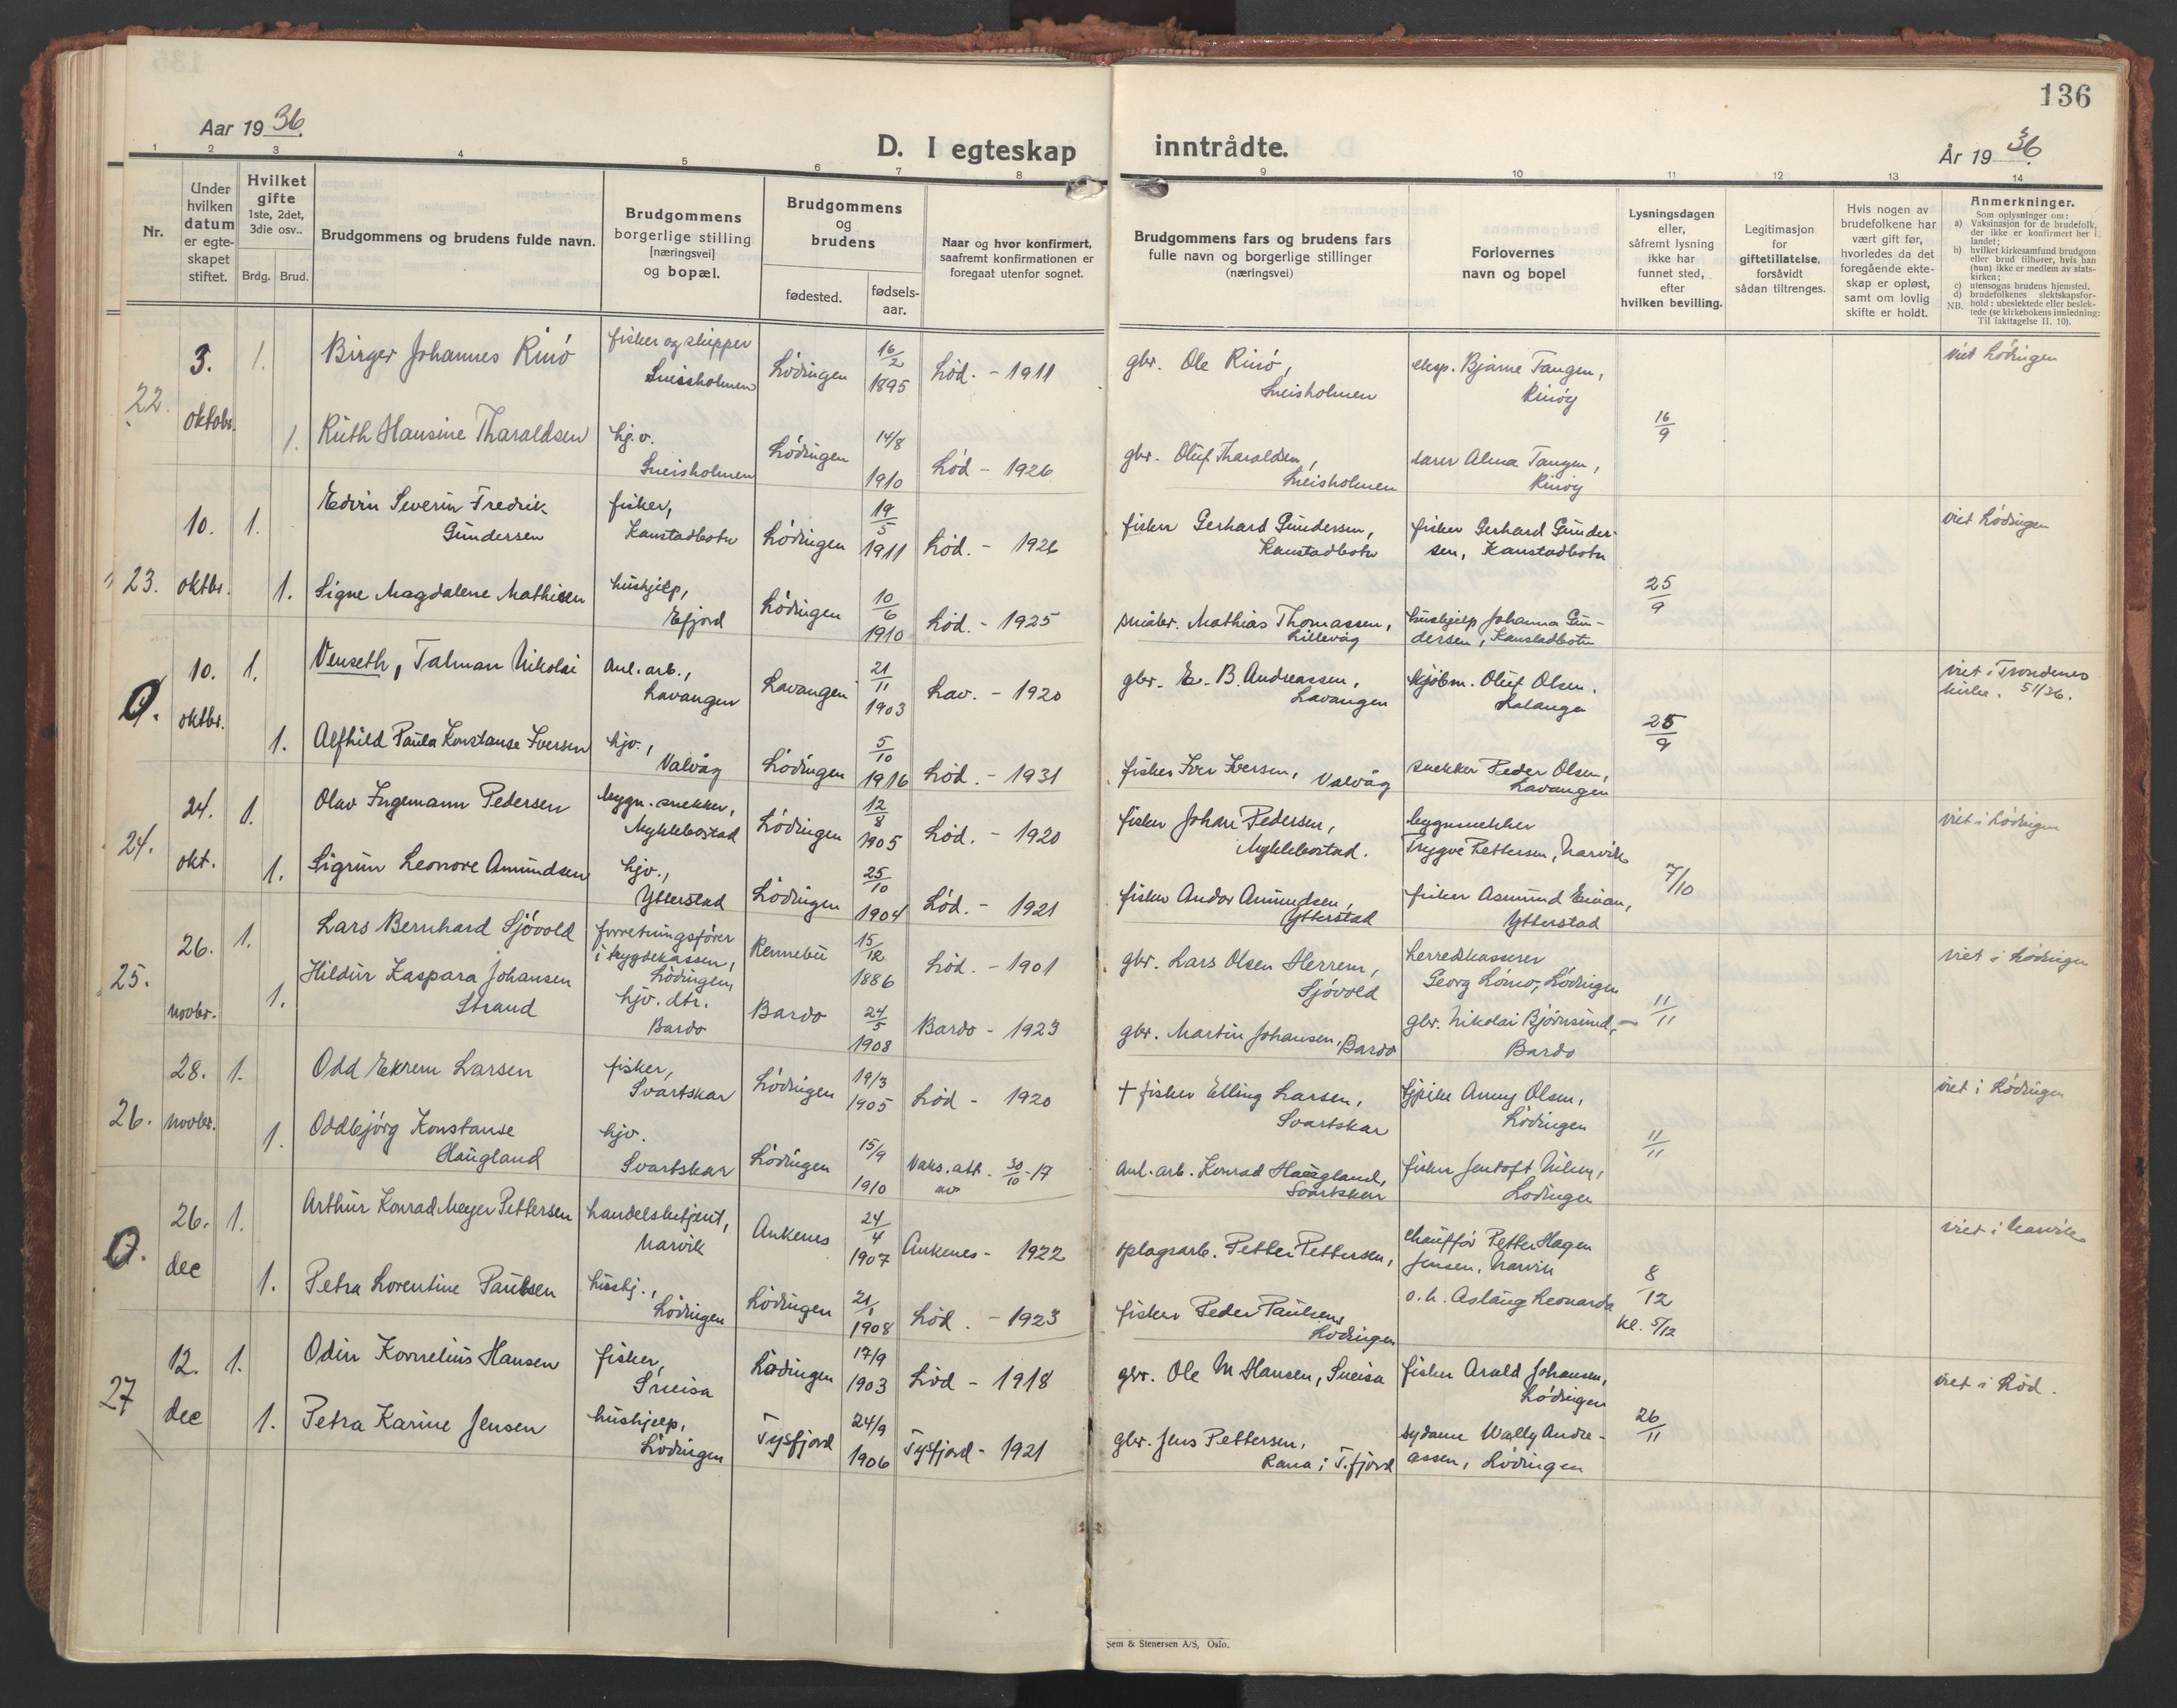 136
Aar 1936.
D. I egteskap inntrådte.
År 1936.
1 2 3 4 5 6 7 8 9 10 11 12 13 14
Nr.
Under hvilken datum er egte-skapet stiftet.
Hvilket gifte 1ste, 2det, 3die osv..
Brdg. Brud.
Brudgommens og brudens fulde navn.
Brudgommens borgerlige stilling [næringsvei] og bopæl.
Brudgommens og brudens
fødested. fødsels-aar.
Naar og hvor konfirmert, saafremt konfirmationen er foregaat utenfor sognet.
Brudgommens fars og brudens fars fulle navn og borgerlige stillinger (næringsvei)
Forlovernes navn og bopel
Lysningsdagen eller, såfremt lysning ikke har funnet sted, efter hvilken bevilling.
Legitimasjon for giftetillatelse, forsåvidt sådan tiltrenges.
Hvis nogen av brudefolkene har vært gift før, hvorledes da det foregående ekte-skap er opløst, samt om lovlig skifte er holdt.
Anmerkninger.
Som oplysninger om:
a) Vaksinasjon for de brudefolk, der ikke er konfirmert her i landet;
b) hvilket kirkesamfund brudgom eller brud tilhører, hvis han (hun) ikke er medlem av stats-kirken;
c) utensogns brudens hjemsted.
d) brudefolkenes slektskapsfor-hold: ubeslektede eller beslek-tede (se kirkebokens innledning: Til iakttagelse II. 10).
NB.
22. 3. oktobr. 1. Birger Johannes Rinö fisker og skipper Sneisholmen Lödingen 16/2 1895 Löd. - 1911 gbr. Ole Rinö, Sneisholmen eksp. Bjarne Tangen, Rinöy 16/9 viet Lödingen
1. Ruth Hansine Tharaldsen hj.v. Sneisholmen Lödingen 14/8 1910 Löd - 1926 gbr. Oluf Tharaldsen, Sneisholmen lærer Alma Tangen, Rinöy
23. 10. oktbr. 1. Edvin Severin Fredrik Gundersen fisker, Kanstadbotn Lödingen 19/5 1911 Löd. - 1926 fisker Gerhard Gundersen, Kanstadbotn fisker Gerhard Gunder-sen, Kanstadbotn 25/9 viet Lödingen
1. Signe Magdalene Mathisen hushjelp, Efjord Lödingen 10/6 1910 Löd. - 1925 småbr. Mathias Thomassen, Lillevåg hushjelp Johanna Gun-dersen, Kanstadbotn
0. 10. oktbr. 1. Venseth, Talman Nikolai Anl. arb., Lavangen Lavangen 21/11 1903 Lav. - 1920 gbr. E. B. Andreassen, Lavangen kjöbm. Oluf Olsen. Salangen 25/9 viet i Trondenes kirke. 51/36.
1. Alfhild Paula Konstanse Iversen hjv., Valvåg Lödingen 5/10 1916 Löd. - 1931 fisker Iver Iversen, Valvåg snekker Peder Olsen, Lavangen
24. 24. okt. 1. Olav Ingemann Pedersen bygn. snekker, Myklebostad Lödingen 12/8 1905 Löd. - 1920 fisker Johan Pedersen, Myklebostad. bygnsnekker Trygve Pettersen, Narvik 7/10 viet i Lödingen
1. Sigrun Leonore Amundsen hjv., Ytterstad Lödingen 25/10 1904 Löd. - 1921 fisker Andor Amundsen, Ytterstad fisker Asmund Einan, Ytterstad
25. 26. novbr. 1. Lars Bernhard Sjövold forretningsförer i trygdekassen, Lödingen Rennebu 15/12 1886 Löd. - 1901 gbr. Lars Olsen Herrem, Sjövold herredskasserer Georg Lömo, Lödingen 11/11 viet i Lödingen
1. Hildur Kaspara Johansen Strand hjv. dtr. Bardo Bardo 24/5 1908 Bardo - 1923 gbr. Martin Johansen, Bardo gbr. Nikolai Björnsund, Bardo
26. 28. novbr. 1. Odd Ekrem Larsen fisker, Svartskar Lödingen 19/3 1905 Löd - 1920 † fisker Elling Larsen, Svartskar frk Anny Olsen, Lödingen 11/11 viet i Lödingen
1. Oddbjörg Konstanse Haugland hjv. Svartskar Lödingen 15/9 1910 Vaks. att. av 30/10-17 Anl. arb. Konrad Haugland, Svartskar fisker Jentoft Nilsen, Lödingen
0. 26. dec 1. Arthur Konrad Meyer Pettersen handelsbetjent, Narvik Ankenes 24/4 1907 Ankenes - 1922 oplagsarb. Petter Pettersen, chaufför Petter Hagen Jensen, Narvik 8/12 kl. 5/12 viet i Narvik
1. Petra Lorentine Paulsen hushj., Lödingen Lödingen 21/1 1908 Löd. - 1923 fisker Peder Paulsen, Lödingen o.h. Aslaug Leonarda
27 12. dec 1. Odin Kornelius Hansen fisker, Sneisa Lödingen 17/9 1903 Löd - 1918 gbr. Ole M Hansen, Sneisa fisker Arald Johansen, Lödingen 26/11 viet i Löd.
1. Petra Karine Jensen hushjelp, Lödingen Tysfjord 24/9 1906 Tysfjord - 1921 gbr. Jens Pettersen, Rana i T.fjord sydame Wally Andre-assen, Lödingen
Sem & Stenersen A/S, Oslo.